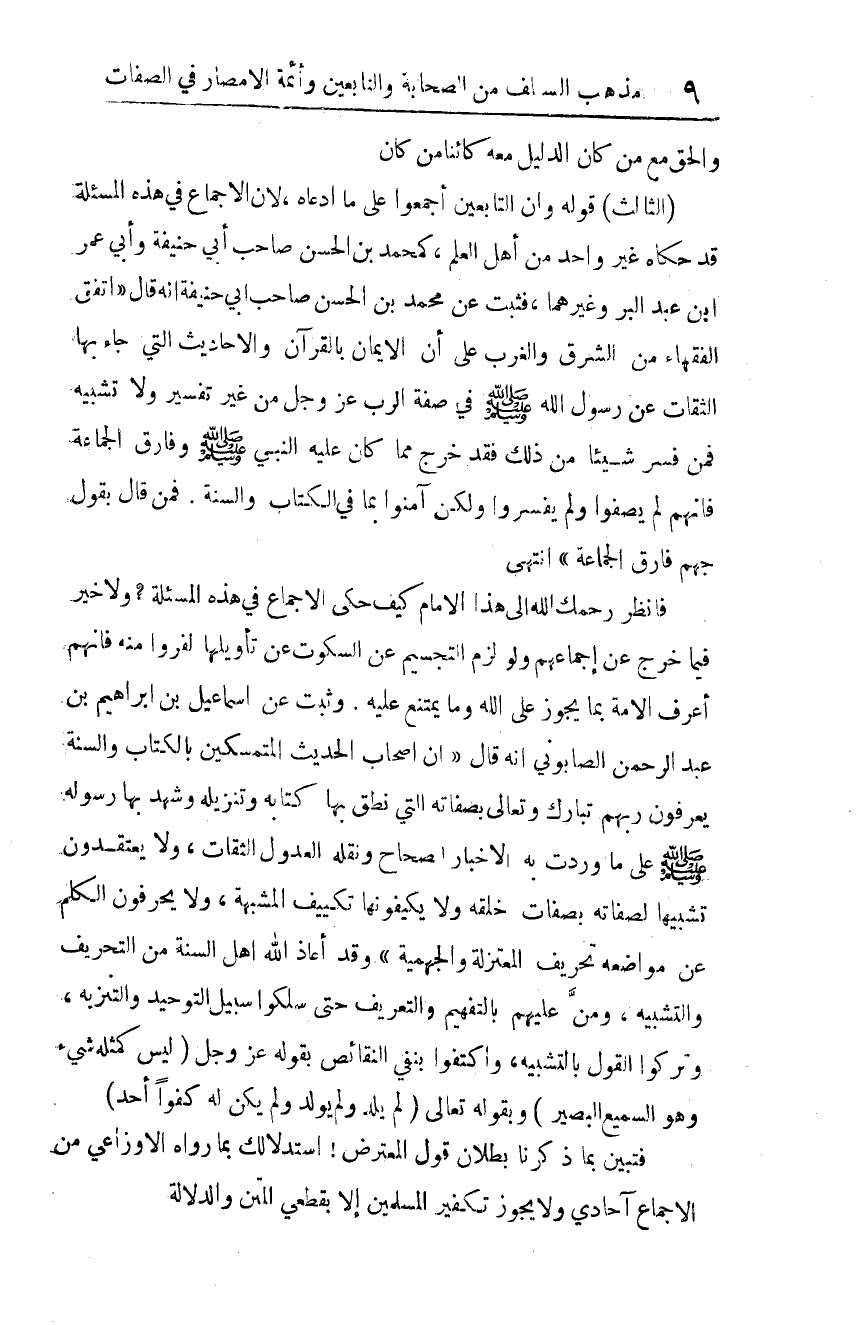 ٩ مذهب السلف من الصحابة والتابعين وأئمة الامصار في الصفات
والحق مع من كان الدليل معه كائنا من كان
(الثالث) قوله وان التابعين أجمعوا على ما ادعاه ، لان الاجماع في هذه المسئلة
قد حكاه غير واحد من أهل العلم ، كمحمد بن الحسن صاحب أبي حنيفة وأبي عمر
ابن عبد البر وغيرهما ، فثبت عن محمد بن الحسن صاحب ابي حنيفة انه قال « اتفق
الفقهاء من الشرق والغرب على أن الايمان بالقرآن والاحاديث التي جاء بها
الثقات عن رسول الله ﷺ في صفة الرب عز وجل من غير تفسير ولا تشبيه
فمن فسر شيئا من ذلك فقد خرج مما كان عليه النبي ﷺ وفارق الجماعة
فانهم لم يصفوا ولم يفسروا ولكن آمنوا بما في الكتاب والسنة . فمن قال بقول
جهم فارق الجماعة » انتهى
فانظر رحمك الله الى هذا الامام كيف حكى الاجماع في هذه المسئلة ? ولا خير
فيما خرج عن إجماعهم ولو لزم التجسيم عن السكوت عن تأويلها لفروا منه فانهم
أعرف الامة بما يجوز على الله وما يمتنع عليه . وثبت عن اسماعيل بن ابراهيم بن
عبد الرحمن الصابوني انه قال « ان اصحاب الحديث المتمسكين بالكتاب والسنة
يعرفون ربهم تبارك وتعالى بصفاته التي نطق بها كتابه وتنزيله وشهد بها رسوله
ﷺ على ما وردت به الاخبار الصحاح ونقله العدول الثقات ، ولا يعتقدون
تشبيها لصفاته بصفات خلقه ولا يكيفونها تكييف المشبهة ، ولا يحرفون الكلم
عن مواضعه تحريف المعتزلة والجهمية » وقد أعاذ الله اهل السنة من التحريف
والتشبيه ، ومنَّ عليهم بالتفهيم والتعريف حتى سلكوا سبيل التوحيد والتنزيه ،
وتركوا القول بالتشبيه، واكتفوا بنفي النقائص بقوله عز وجل ( ليس كمثله شيء
وهو السميع البصير ) وبقوله تعالى ( لم يلد ولم يولد ولم يكن له كفواً أحد)
فتبين بما ذكرنا بطلان قول المعترض : استدلالك بما رواه الاوزاعي من
الاجماع آحادي ولا يجوز تكفير المسلمين إلا بقطعي المتن والدلالة